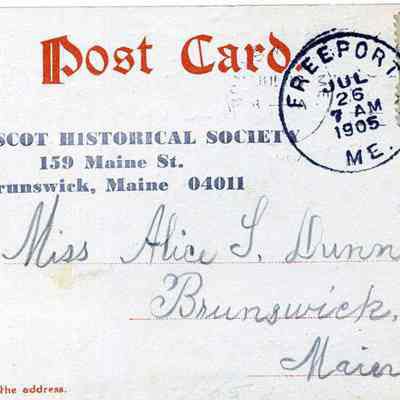 Post Card.
FREEPORT
JUL
26
7 AM
1905
ME.
SCOT HISTORICAL SOCIETY
159 Maine St.
runswick, Maine 04011
Miss Alice S. Dunn
Brunswick,
Maine
the address.